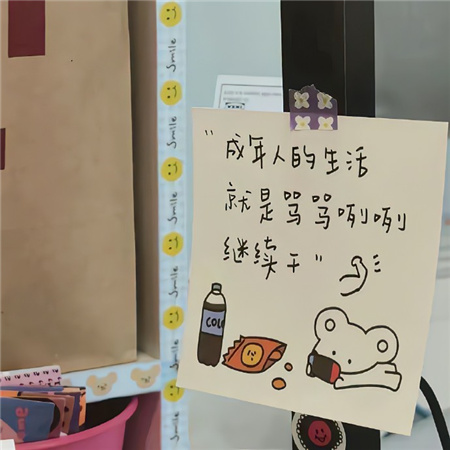 "成年人的生活
就是骂骂咧咧
继续干"
COL
smile
smile
smile
smile
smile